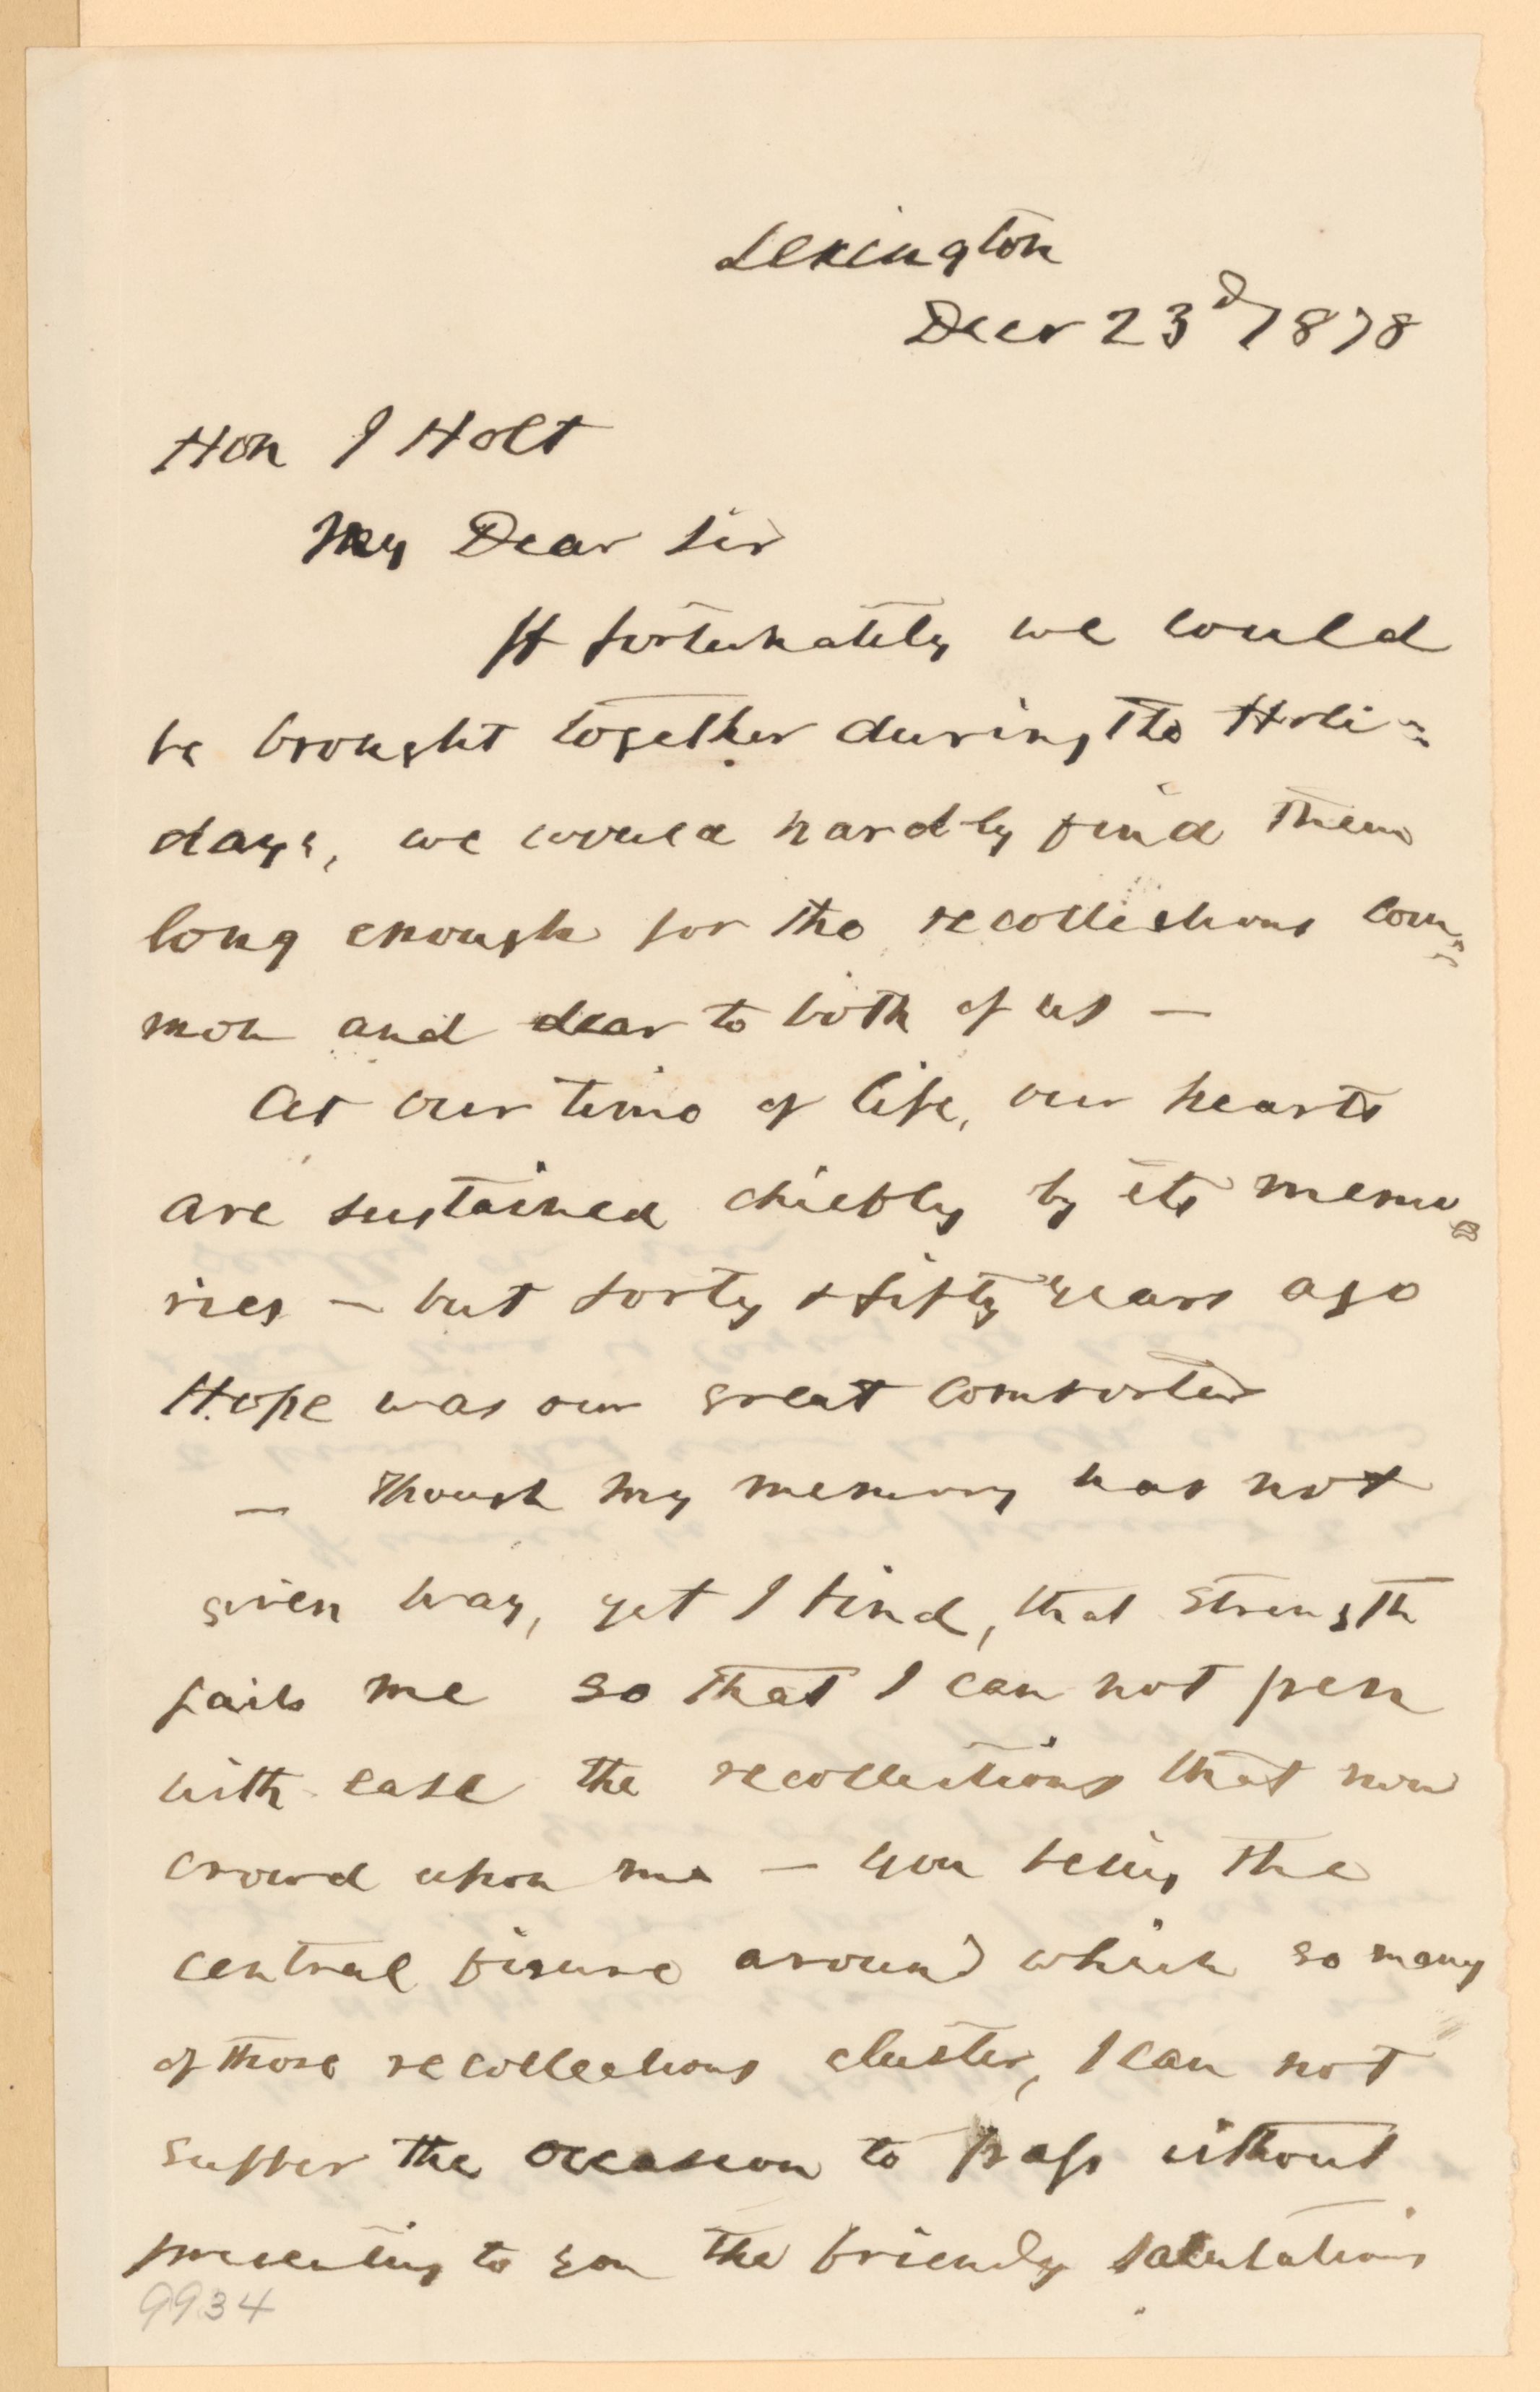 Lexington
Decr 23d 1878
Hon J Holt
My Dear Sir
If fortunately we could
be brought together during the Holi=
days, we would hardly find them
long enough for the recollections com=
mon and dear to both of us —
At our time of life, our hearts
are sustained chiefly by its memo=
ries — but forty & fifty years ago
Hope was our great comforter
— Though my memory has not
given way, yet I find, that strength
fails me so that I can not pen
with ease the recollections that now
crowd upon me — you being the
central figure around which so many
of those recollections cluster, I can not
suffer the occasion to pass without
presenting to you the friendly salutations
9934